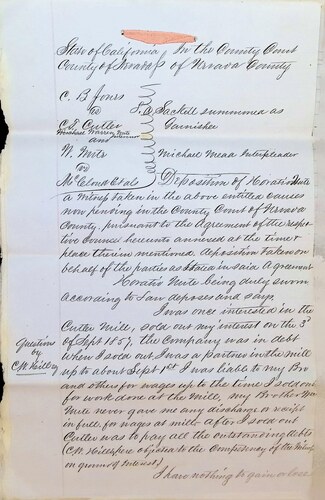 State of California In the County Court
County of Nevada of Nevada County
C. B Jones
vs
C. E. Cutler
Michael
and
W. Mite
vs
McCloud et als
S. A Sackett summoned as
Garnishee
Michael Mead Interpleader
Deposition of Horatio
a witness taken in the above entitled causes
now pending in the County Court of Nevada
County, pursuant to the agreement of the respec-
tive Counsel hereunto annexed at the time &
place therein mentioned. deposition taken on
behalf of the parties as stated in said agreement
Horatio being duly sworn
according to Law deposes and says.
I was once interested in the
Cutler Mill, sold out my interest on the 3d
of Sept 1857. the Company was in debt
when I sold out. I was a partner in the mill
up to about Sept 1st I was liable to my Bro
and others for wages up to the time I sold out
for work done at the mill, my Brother
never gave me any discharge or receipt
in full, for wages at mill. after I sold out
Cutler was to pay all the outstanding debts
(C.W. Hill objects to the Competency of the witness
on ground of interest)
I have nothing to gain or lose
Questions
by
C.W. Hill